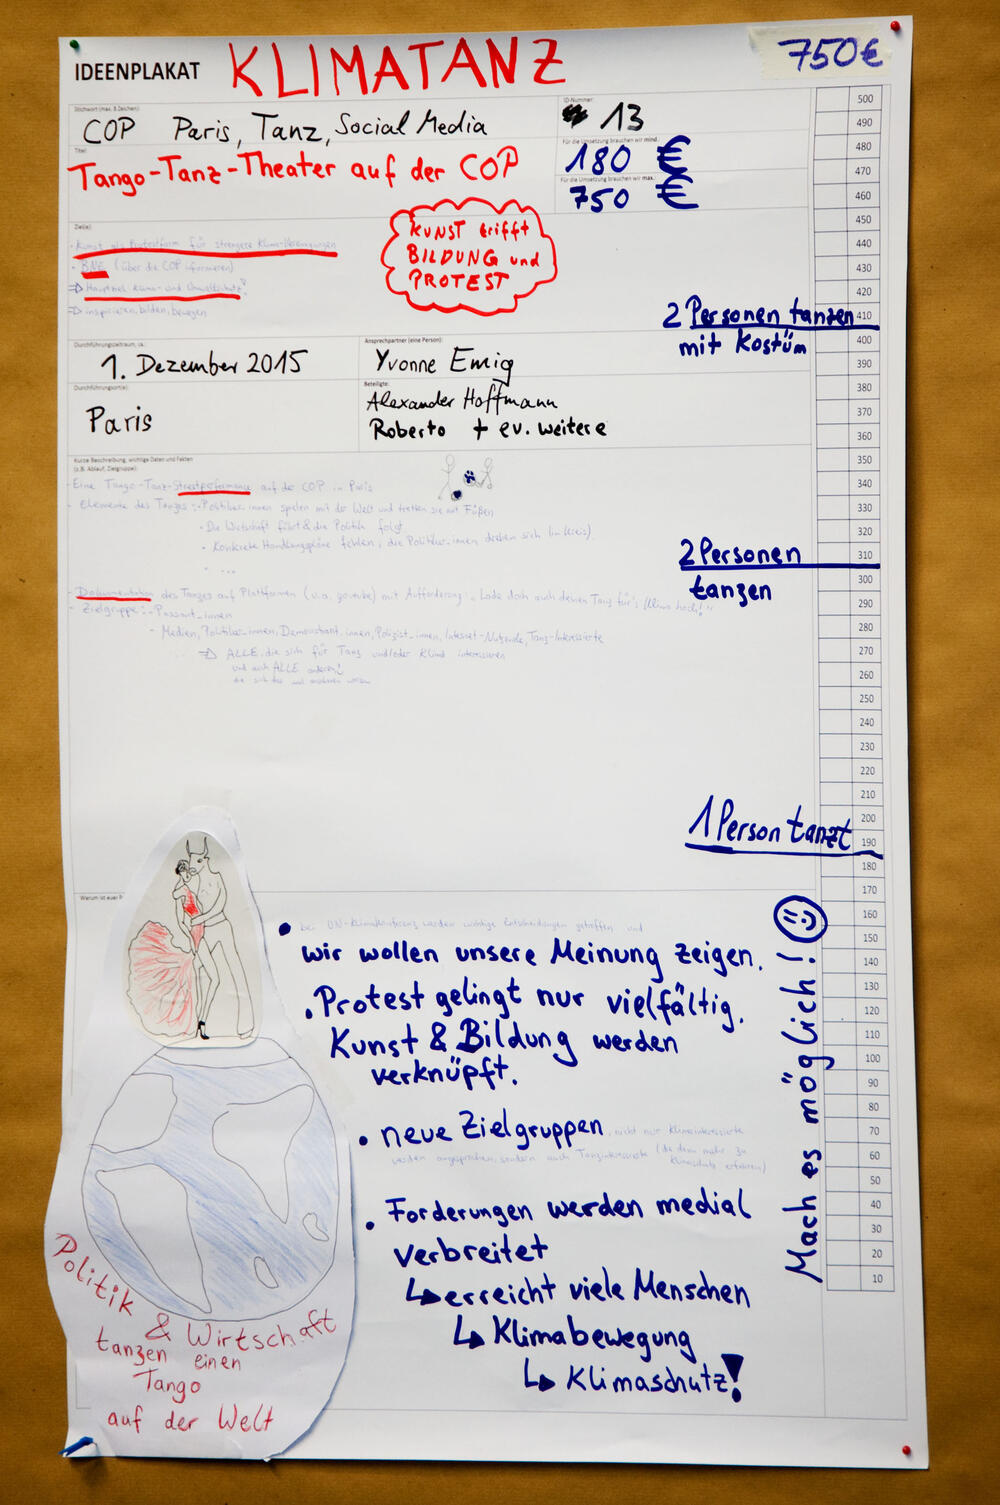 IDEENPLAKAT KLIMATANZ
750€
Stichwort (max. 3 Zeichen):
COP Paris, Tanz, Social Media
ID-Nummer:
13
Titel:
Tango-Tanz-Theater auf der COP
Für die Umsetzung brauchen wir mind.
180 €
Für die Umsetzung brauchen wir max.
750 €
Ziel(e):
Kunst als Protestform für strengere Klima-Vereinbarungen
- BNE (über die COP informieren)
⇒ Hauptziel Klima- und Umweltschutz!
⇒ inspirieren, bilden, bewegen
KUNST trifft
BILDUNG und
PROTEST
Durchführungszeitraum, ca.:
1. Dezember 2015
Ansprechpartner (eine Person):
Yvonne Emig
Durchführungsort(e):
Paris
Beteiligte:
Alexander Hoffmann
Roberto + ev. weitere
Kurze Beschreibung, wichtige Daten und Fakten
(z.B. Ablauf, Zielgruppe):
- Eine Tango-Tanz-Streetperformance auf der COP in Paris
- Elemente des Tanzes: - Politiker_innen spielen mit der Welt und treten sie mit Füßen
- Die Wirtschaft führt & die Politik folgt
- Konkrete Handlungspläne fehlen, die Politiker_innen drehen sich (im Kreis)
- ...
- Dokumentation des Tanzes auf Plattformen (u.a. youtube) mit Aufforderung: „Lade doch auch deinen Tanz für's Klima hoch!"
- Zielgruppe: - Passant_innen
- Medien, Politiker_innen, Demonstrant_innen, Polizist_innen, Internet-Nutzende, Tanz-Interessierte
⇒ ALLE, die sich für Tanz und/oder Klima interessieren
und auch ALLE anderen!
2 Personen tanzen
mit Kostüm
2 Personen
tanzen
1 Person tanzt
500
490
480
470
460
450
440
430
420
410
400
390
380
370
360
350
340
330
320
310
300
290
280
270
260
250
240
230
220
210
200
190
180
170
160
150
140
130
120
110
100
90
80
70
60
50
40
30
20
10
Mach es möglich!
Warum ist euer P
• bei UN-Klimakonferenz werden wichtige Entscheidungen getroffen und
wir wollen unsere Meinung zeigen.
• Protest gelingt nur vielfältig.
Kunst & Bildung werden
verknüpft.
• neue Zielgruppen, nicht nur Klimainteressierte
werden angesprochen, sondern auch Tanzinteressierte (die dann mehr zu
Klimaschutz erfahren)
• Forderungen werden medial
verbreitet
↳ erreicht viele Menschen
↳ Klimabewegung
↳ Klimaschutz!
Politik & Wirtschaft
tanzen einen
Tango
auf der Welt